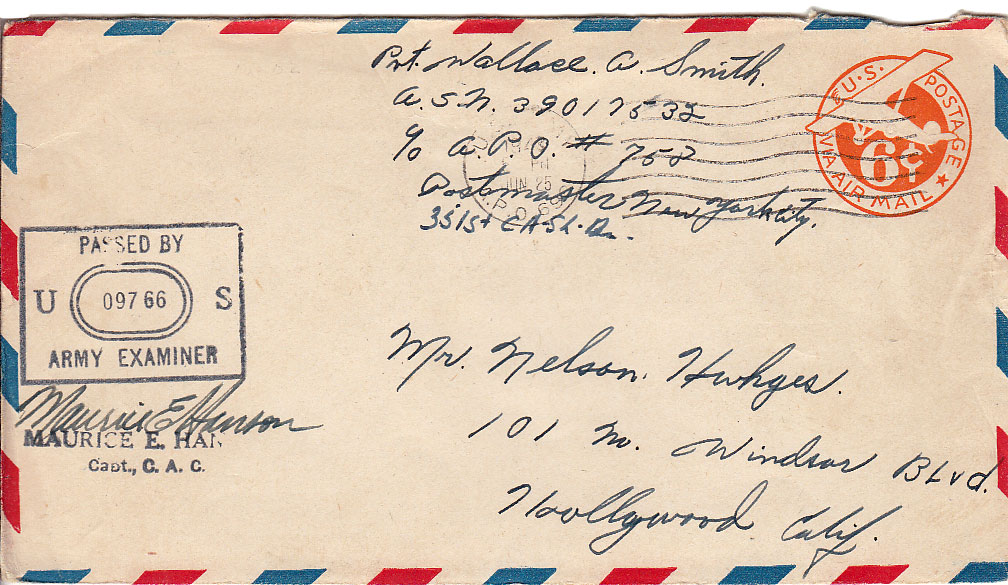 Pvt. Wallace. A. Smith.
A.S.N. 39017532
c/o A.P.O. # 758
Postmaster New York City.
351st CA SL. Bn.
U.S. POSTAGE
6¢
VIA AIR MAIL
JUN 25
PASSED BY
U 09766 S
ARMY EXAMINER
Maurice E Hanson
MAURICE E. HAN
Capt., C. A. C.
Mr. Nelson. Huhges.
101 N. Windsor Blvd.
Hoollywood Calif.